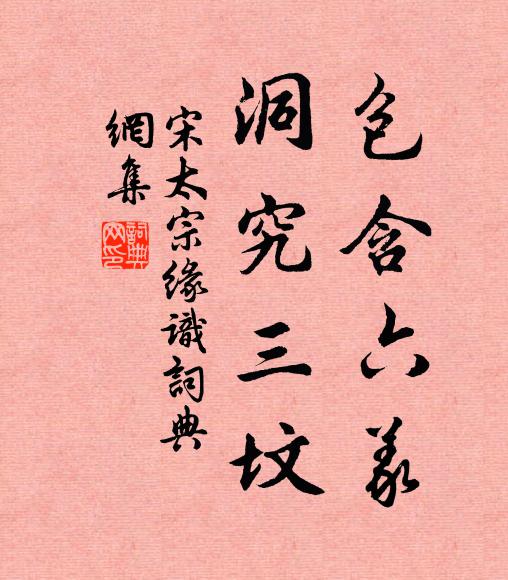 包含六義
洞究三墳
宋太宗緣識詞典
網集
詞典網印